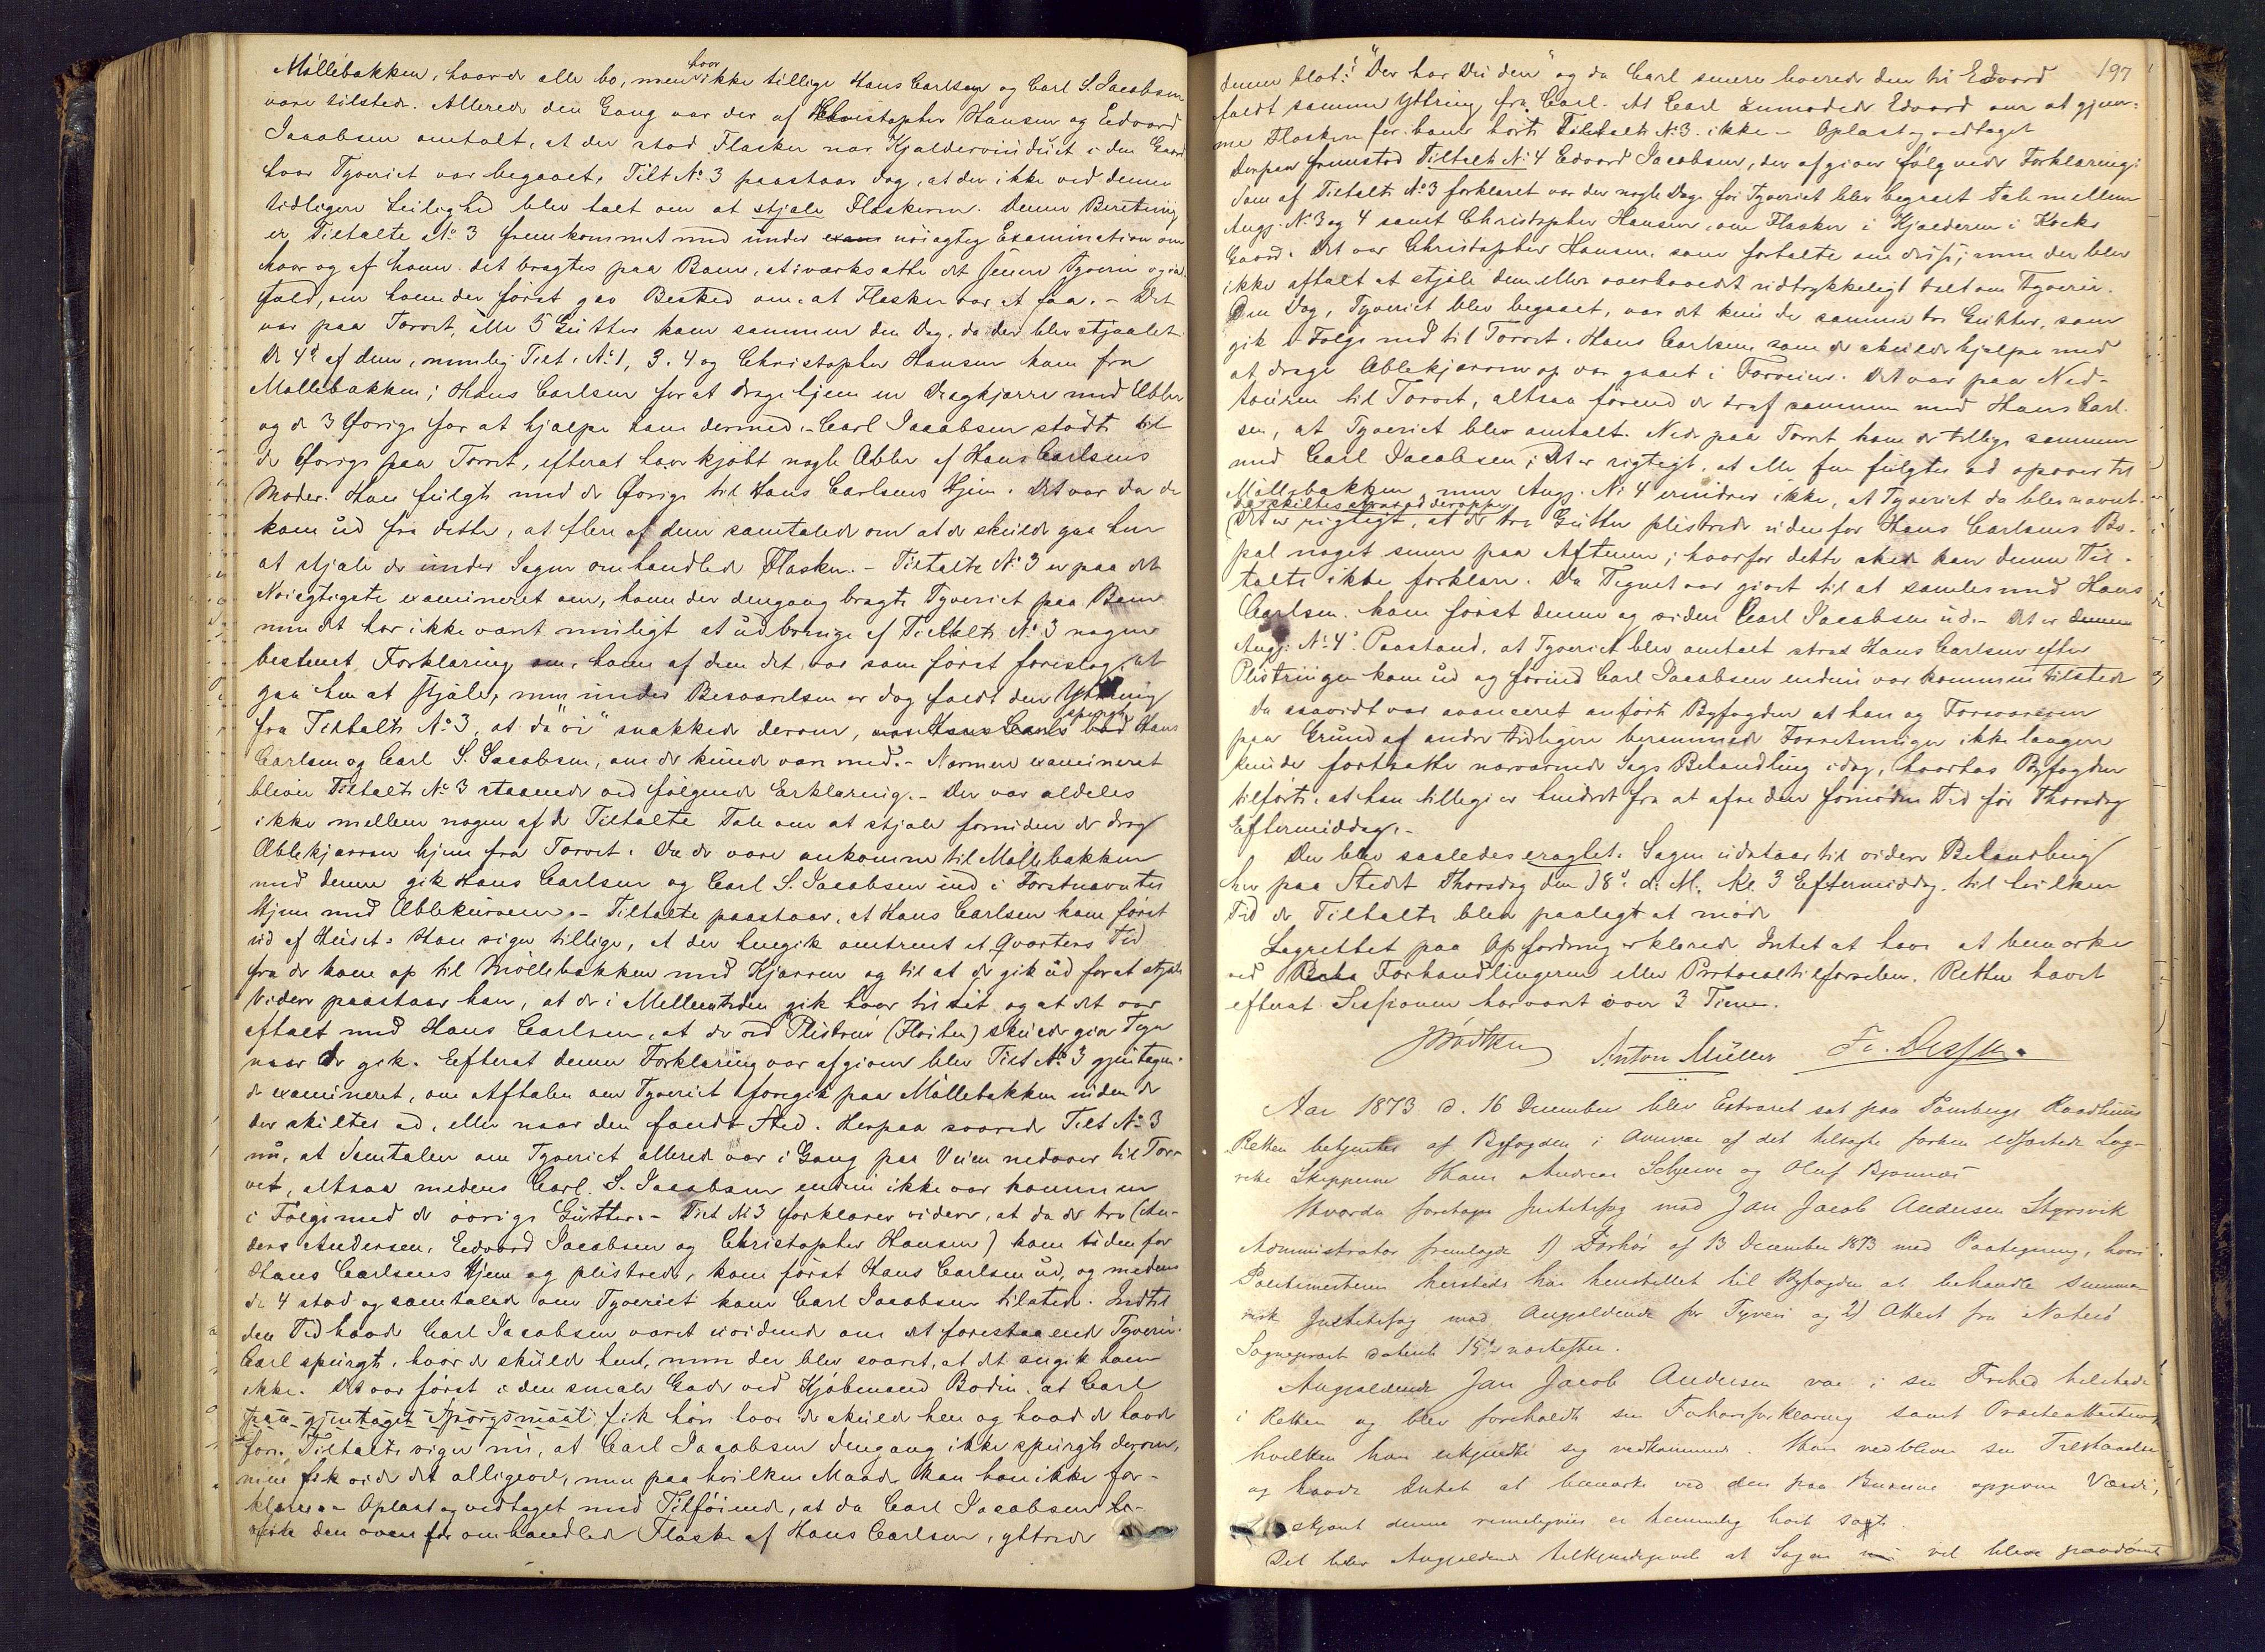 Möllebakken, hvor de alle bo, men hvor ikke tillige Hans Carlsen og Carl S. Jacobsen
vare tilstede. Allerede den Gang var der af Christopher Hansen og Edvard
Jacobsen omtalt, at der stod Flasker nær Kjældervinduet i den Gaard
hvor Tyveriet var begaaet. Tilt No 3 paastaar dog, at der ikke ved denne
tidligere Leilighed blev talt om at stjæle Flaskerne. Denne Beretning
er Tiltalte No 3 fremkommet med under exam nöiagtig Examination om
hvor og af hvem det bragtes paa Bane, at iværksætte det senere Tyveri og i
fald, om hvem der först gav Besked om at Flasker var at faa. - Det
var paa Torvet, alle 5 Gutter kom sammen den Dag, da der blev stjaalet
De 4de af dem, nemlig Tilt. No 1, 3. 4. og Christopher Hansen kom fra
Möllebakken; Hans Carlsen for at drage hjem en Dragkjærre med Æbler
og de 3 Övrige for at hjælpe ham dermed. - Carl Jacobsen stödte til
de Övrige paa Torvet, efterat have kjöbt nogle Æbler af Hans Carlsens
Moder. Han fulgte med de Övrige til Hans Carlsens Hjem. Det var da de
kom ud fra dette, at flere af dem samtalede om at de skulde gaa hen
at stjæle de under Sagen omhandlede Flasker. - Tiltalte No 3 er paa det
Nöiagtigste examineret om, hvem der dengang bragte Tyveriet paa Bane
men det har ikke været muligt at udbringe af Tiltalte No 3 nogen
bestemt Forklaring om, hvem af dem det var som först foreslog, at
gaa hen at stjæle, men under Besvarelsen er dog faldt den Yttring
fra Tiltalte No 3, at da "vi" snakkede derom, spurgte Hans
Carlsen og Carl S. Jacobsen, om de kunde være med. - Nærmere examineret
bliver Tiltalte No 3 staaende ved fölgende Erklæring. - Der var aldeles
ikke mellem nogen af de Tiltalte Tale om at stjæle forinden de drog
Æblekjærren hjem fra Torvet. Da de vare ankomne til Möllebakken
med denne gik Hans Carlsen og Carl S. Jacobsen ind i Förstnævntes
Hjem med Æblekurvene. - Tiltalte paastaar, at Hans Carlsen kom först
ud af Huset. Han siger tillige, at der hengik omtrent et Qvarters Tid
fra de kom op til Möllebakken med Kjærren og til at de gik ud for at stjæle
Videre paastaar han, at de i Mellemtiden gik hver til sit og at det var
aftalt med Hans Carlsen, at de ved Plistren (Flöiten) skulde give Tegn
naar de gik. Efterat denne Forklaring var afgiven blev Tilt No 3 gjentagen-
de examineret, om Aftalen om Tyveriet foregik paa Möllebakken inden de
der skiltes ad, eller naar den fandt Sted. Herpaa svarede Tilt No 3
nu, at Samtalen om Tyveriet allerede var i Gang paa Veien nedover til Tor-
vet, altsaa medens Carl S. Jacobsen endnu ikke var kommen
i Fölge med de övrige Gutter. - Tilt No 3 forklarer videre, at da de tre (An-
ders Andersen, Edvard Jacobsen og Christopher Hansen) kom udenfor
Hans Carlsens Hjem og plistrede, kom först Hans Carlsen ud, og medens
de 4 stod og samtalede om Tyveriet kom Carl Jacobsen tilstede. Indtil
den Tid havde Carl Jacobsen været uvidende om det forestaaende Tyveri.
Carl spurgte, hvor de skulde hen, men der blev svaret, at det angik ham
ikke. Det var först i den smale Gade ved Kjöbmand Bodin at Carl
paa gjentaget Spörgsmaal fik höre hvor de skulde hen og hvad de havde
for. Tiltalte siger nu, at Carl Jacobsen dengang ikke spurgte derom,
men fik vide det alligevel, men paa hvilken Maade kan han ikke for-
klare. - Oplæst og vedtaget med Tilföiende, at da Carl Jacobsen le-
verte den ovenfor omhandlede Flaske af Hans Carlsen, yttrede
197
denne blot: "Der har Du den" og da Carl senere leverede den til Edvard
faldt samme Yttring fra Carl. At Carl anmodede Edvard om at gjem-
me Flasken for ham hörte Tiltalte No 3 ikke. - Oplæst og vedtaget
Derpaa fremstod Tiltalte No 4 Edvard Jacobsen, der afgiver fölgende Forklaring:
Som af Tiltalte No 3 forklaret var der nogle Dage för Tyveriet blev begaaet Tale mellem
Angj. No 3 og 4 samt Christopher Hansen om Flasker i Kjælderen i Kocks
Gaard. Det var Christopher Hansen som fortalte om disse; men der blev
ikke aftalt at stjæle dem eller overhovedet udtrykkeligt talt om Tyveri.
Den Dag, Tyveriet blev begaaet, var det kun de samme tre Gutter, som
gik i Fölge ned til Torvet. Hans Carlsen som de skulde hjælpe med
at drage Æblekjærren op var gaaet i Forveien. Det var paa Ned-
touren til Torvet, altsaa förend de traf sammen med Hans Carl-
sen, at Tyveriet blev omtalt. Nede paa Torvet kom de tillige sammen
med Carl Jacobsen; Det er rigtigt, at alle fem fulgtes ad opover til
Möllebakken men Angj. No 4 erindrer ikke, at Tyveriet da blev nævnt.
da skiltes deroppe
Det er rigtigt, at de tre Gutter plistrede udenfor Hans Carlsens Bo-
pæl noget senere paa Aftenen; hvorfor dette skede kan denne Til-
talte ikke forklare. Da Tegnet var givet til at samles med Hans
Carlsen kom först denne og siden Carl Jacobsen ud. - Det er denne
Angj. No 4s Paastand, at Tyveriet blev omtalt strax Hans Carlsen efter
Plistringen kom ud og förend Carl Jacobsen endnu var kommen tilstede
Da saavidt var avanceret anförte Byfogden at han og Forsvareren
paa Grund af andre tidligere berammede Forretninger ikke længere
kunde fortsætte nærværende Sags Behandling idag, hvorhos Byfogden
tilförte, at han tillige er hindret fra at afse den fornödne Tid för Thorsdag
Eftermiddag. -
Der blev saaledes eragtet. Sagen udstaar til videre Behandling
her paa Stedet Thorsdag den 18de d. M. Kl. 3 Eftermiddag, til hvilken
Tid de Tiltalte blev paalagt at möde
Lagrettet paa Opfordring erklærede Intet at have at bemærke
ved Forhandlingerne eller Protocoltilförselen. Retten hævet
efterat Sessionen har varet over 3 Timer.
Anton Müller
Aar 1873 d. 16 December blev Extraret sat paa Tönsbergs Raadhuus
Retten betjentes af Byfogden i Overvær af det tilsagte forhen edfæstede Lag-
rette Skipperne Hans Andreas Schjerve og Oluf Bjönnæs
Hvorda foretoges Justitssag mod Jan Jacob Andersen Styrsvik
Administrator fremlagde 1) Forhör af 13 December 1873 med Paategning, hvori
Politimesteren hersteds har henstillet til Byfogden at behandle summa-
risk Justitssag mod Angjældende for Tyveri og 2) Attest fra Nöterö
Sognepræst dateret 15de næstefter.
Angjældende Jan Jacob Andersen var i sin Frihed tilstede
i Retten og blev foreholdt sin Forhörsforklaring samt Præsteattesten
hvilken han erkjendte sig vedkommende. Han vedbliver sin Tilstaaelse
og havde Intet at bemærke ved den paa Buxerne opgivne Værdi,
skjönt denne rimeligviis er temmelig höit sagt.
Det blev Angjældende tilkjendegivet at Sagen vil blive paadömt